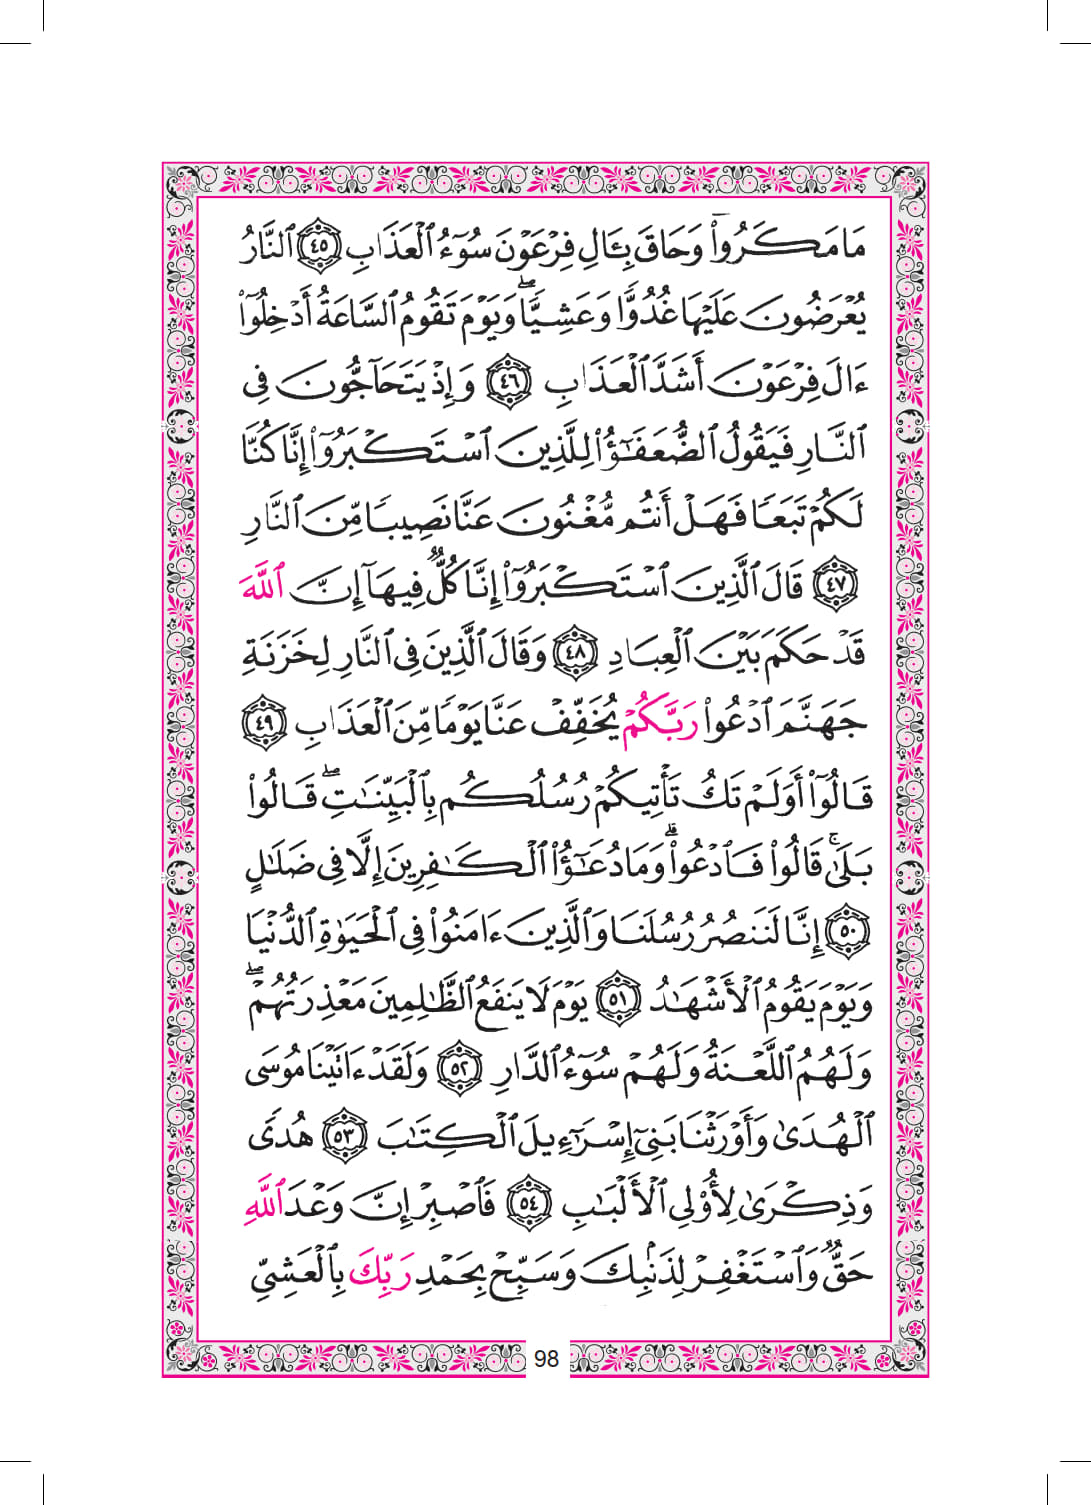 مَا مَكَرُوا۟ ۖ وَحَاقَ بِـَٔالِ فِرْعَوْنَ سُوٓءُ ٱلْعَذَابِ ٤٥ ٱلنَّارُ
يُعْرَضُونَ عَلَيْهَا غُدُوًّا وَعَشِيًّا ۖ وَيَوْمَ تَقُومُ ٱلسَّاعَةُ أَدْخِلُوٓا۟
ءَالَ فِرْعَوْنَ أَشَدَّ ٱلْعَذَابِ ٤٦ وَإِذْ يَتَحَآجُّونَ فِى
ٱلنَّارِ فَيَقُولُ ٱلضُّعَفَٰٓؤُا۟ لِلَّذِينَ ٱسْتَكْبَرُوٓا۟ إِنَّا كُنَّا
لَكُمْ تَبَعًا فَهَلْ أَنتُم مُّغْنُونَ عَنَّا نَصِيبًا مِّنَ ٱلنَّارِ
٤٧ قَالَ ٱلَّذِينَ ٱسْتَكْبَرُوٓا۟ إِنَّا كُلٌّ فِيهَآ إِنَّ ٱللَّهَ
قَدْ حَكَمَ بَيْنَ ٱلْعِبَادِ ٤٨ وَقَالَ ٱلَّذِينَ فِى ٱلنَّارِ لِخَزَنَةِ
جَهَنَّمَ ٱدْعُوا۟ رَبَّكُمْ يُخَفِّفْ عَنَّا يَوْمًا مِّنَ ٱلْعَذَابِ ٤٩
قَالُوٓا۟ أَوَلَمْ تَكُ تَأْتِيكُمْ رُسُلُكُم بِٱلْبَيِّنَٰتِ ۖ قَالُوا۟
بَلَىٰ ۚ قَالُوا۟ فَٱدْعُوا۟ ۗ وَمَا دُعَٰٓؤُا۟ ٱلْكَٰفِرِينَ إِلَّا فِى ضَلَٰلٍ
٥٠ إِنَّا لَنَنصُرُ رُسُلَنَا وَٱلَّذِينَ ءَامَنُوا۟ فِى ٱلْحَيَوٰةِ ٱلدُّنْيَا
وَيَوْمَ يَقُومُ ٱلْأَشْهَٰدُ ٥١ يَوْمَ لَا يَنفَعُ ٱلظَّٰلِمِينَ مَعْذِرَتُهُمْ ۖ
وَلَهُمُ ٱللَّعْنَةُ وَلَهُمْ سُوٓءُ ٱلدَّارِ ٥٢ وَلَقَدْ ءَاتَيْنَا مُوسَى
ٱلْهُدَىٰ وَأَوْرَثْنَا بَنِىٓ إِسْرَٰٓءِيلَ ٱلْكِتَٰبَ ٥٣ هُدًى
وَذِكْرَىٰ لِأُو۟لِى ٱلْأَلْبَٰبِ ٥٤ فَٱصْبِرْ إِنَّ وَعْدَ ٱللَّهِ
حَقٌّ وَٱسْتَغْفِرْ لِذَنۢبِكَ وَسَبِّحْ بِحَمْدِ رَبِّكَ بِٱلْعَشِىِّ
98